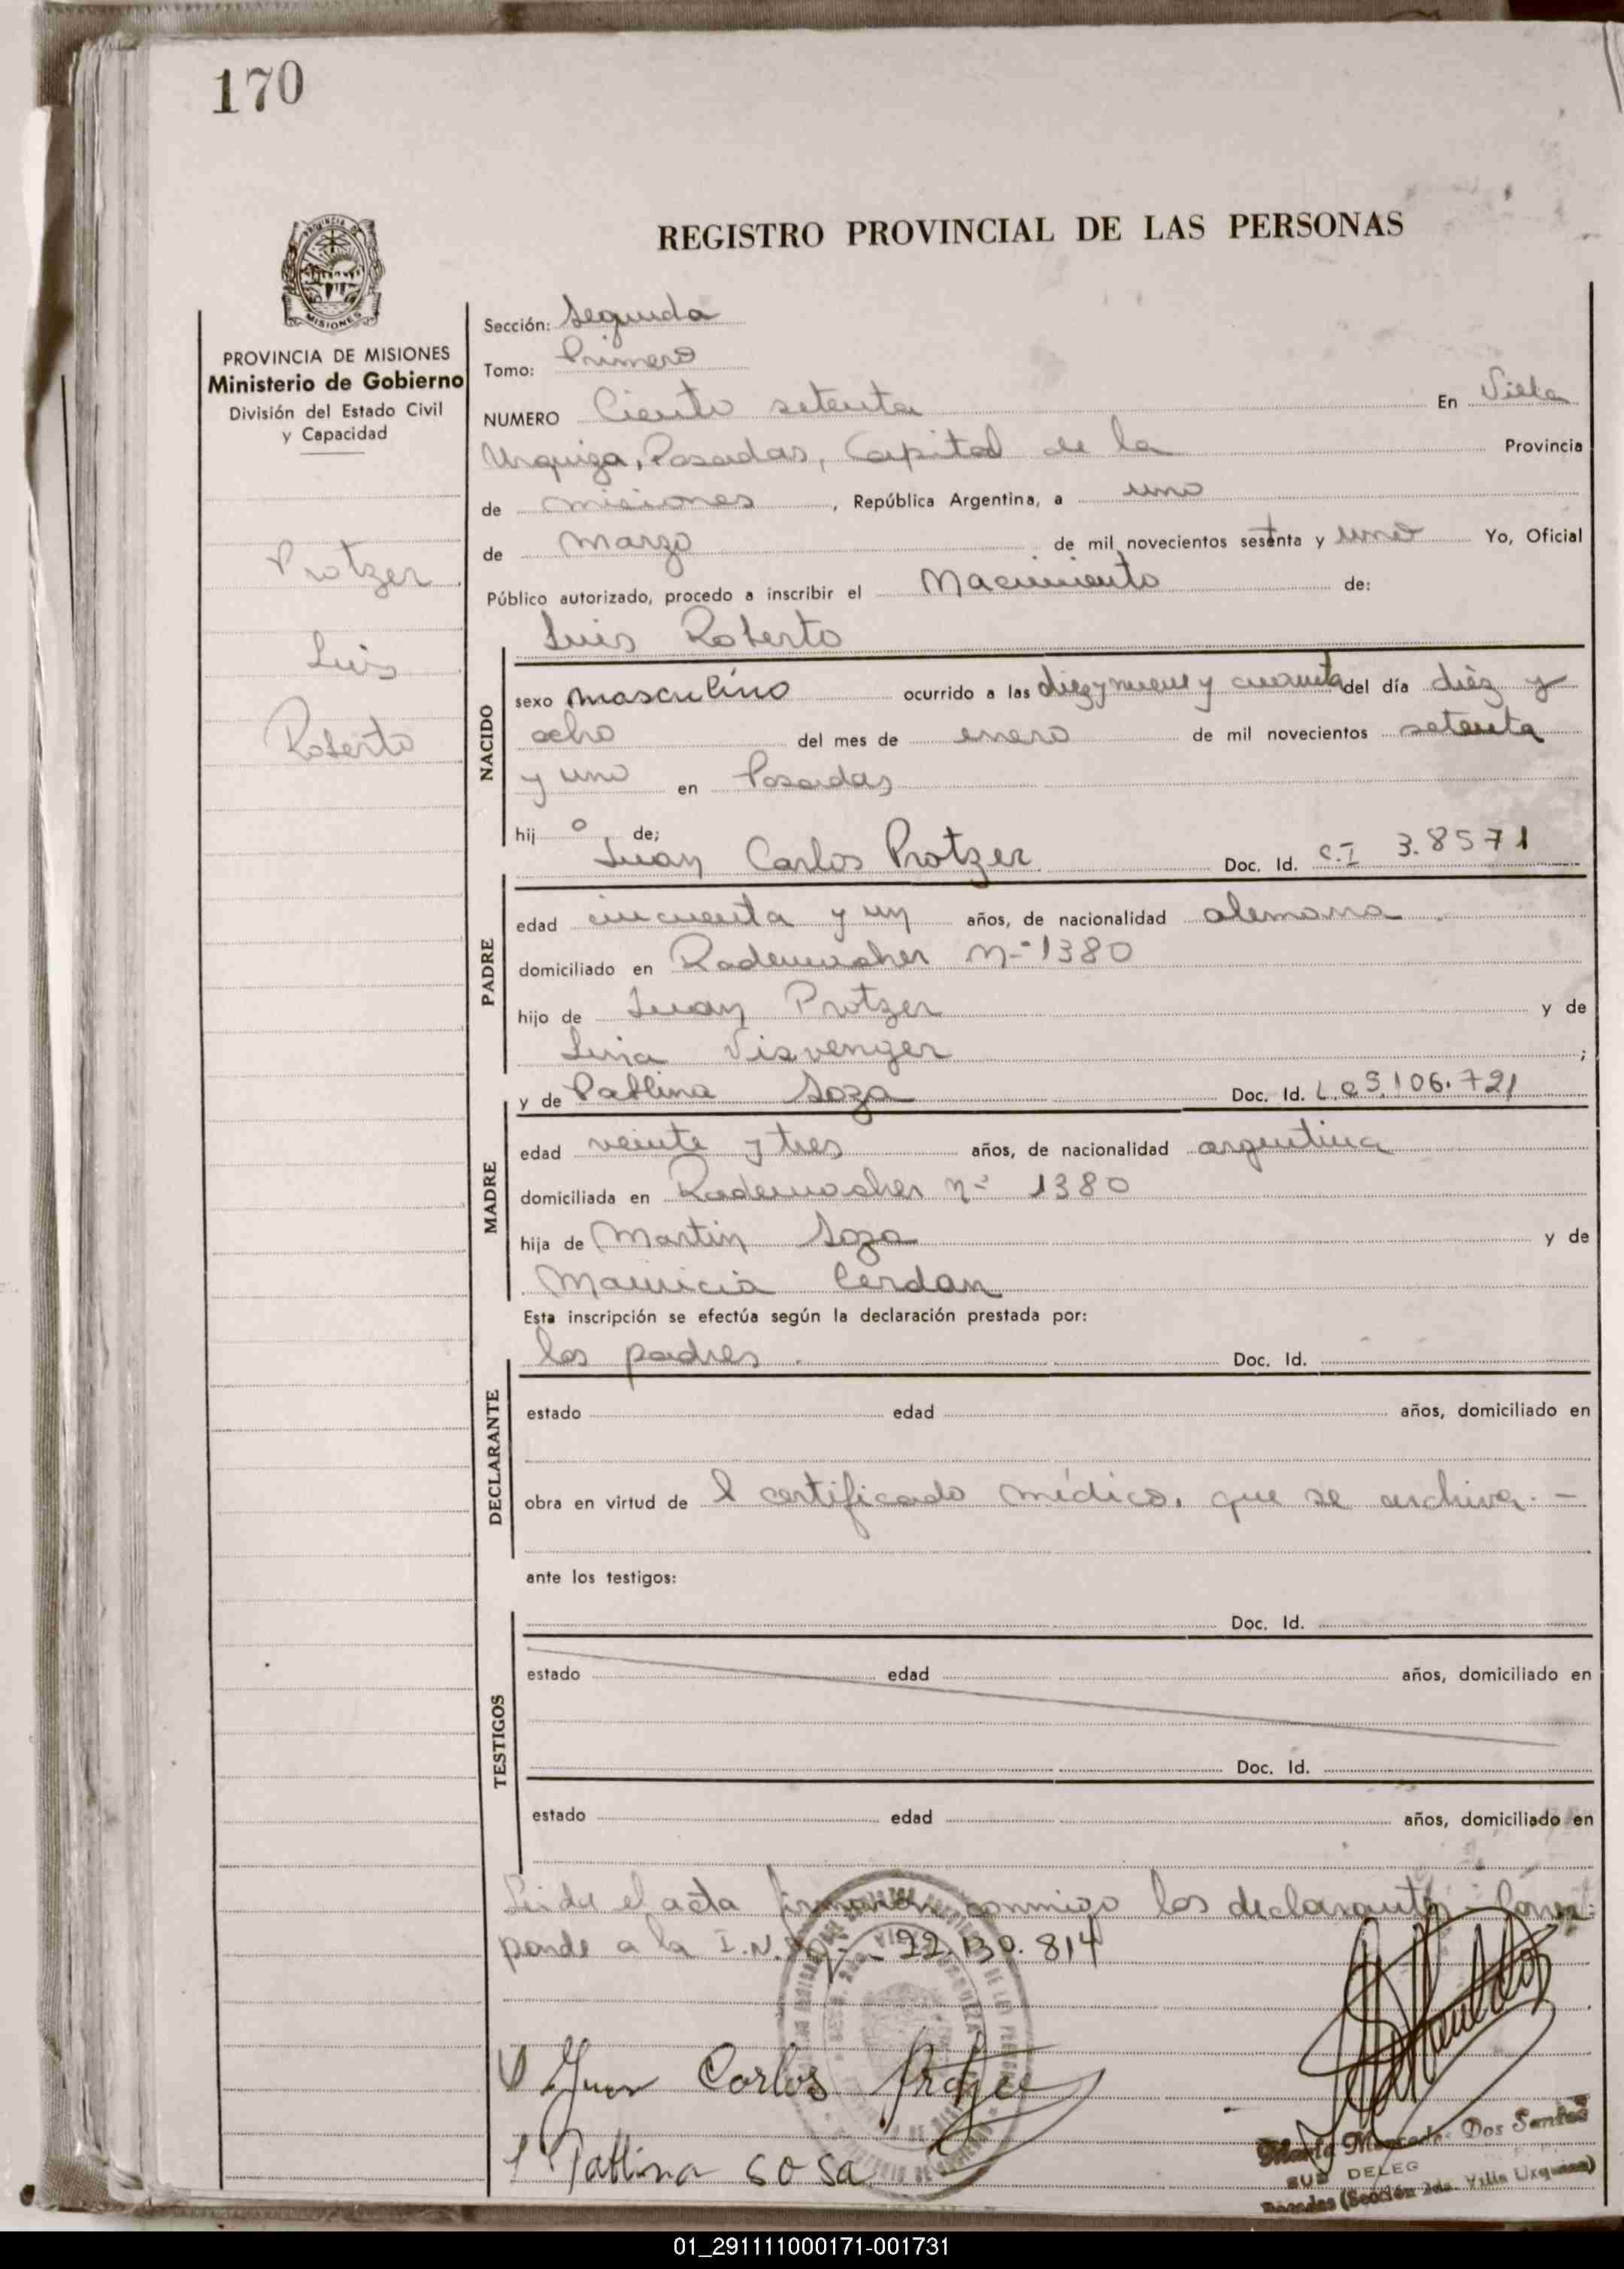 170
REGISTRO PROVINCIAL DE LAS PERSONAS
MISIONES
PROVINCIA DE MISIONES
Ministerio de Gobierno
División del Estado Civil
y Capacidad
Protzer
Luis
Roberto
Sección: Segunda
Tomo: Primero
NUMERO Ciento setenta En Villa
Urquiza, Posadas, Capital de la Provincia
de misiones, República Argentina, a uno
de marzo de mil novecientos sesenta y uno Yo, Oficial
Público autorizado, procedo a inscribir el Nacimiento de:
Luis Roberto
NACIDO
sexo masculino ocurrido a las diez y nueve y cuarenta del día diez y
ocho del mes de enero de mil novecientos setenta
y uno en Posadas
hij o de;
Juan Carlos Protzer Doc. Id. C.I 3.8571
PADRE
edad cincuenta y un años, de nacionalidad alemana
domiciliado en Rademacher Nº 1380
hijo de Juan Protzer y de
Luisa Visvenger ;
y de Pablina Soza Doc. Id. L.C 5.106.721
MADRE
edad veinte y tres años, de nacionalidad argentina
domiciliada en Rademacher Nº 1380
hija de Martin Soza y de
Mauricia Cerdan
Esta inscripción se efectúa según la declaración prestada por:
los padres. Doc. Id.
DECLARANTE
estado edad años, domiciliado en
obra en virtud de l certificado médico, que se archiva. —
ante los testigos:
Doc. Id.
TESTIGOS
estado edad años, domiciliado en
Doc. Id.
estado edad años, domiciliado en
Leida el acta firmaron conmigo los declarantes - Corres
ponde a la I.N. Nº 22.130.814
Juan Carlos Protzer
Pablina Sosa
María Mercedes Dos Santos
SUB DELEG
Posadas (Sección 2da. Villa Urquiza)
01_291111000171-001731